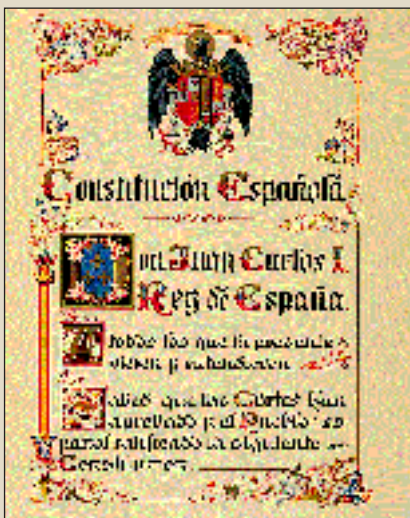 Constitución Española
Don Juan Carlos I,
Rey de España.
A todos los que la presente
vieren y entendieren
Sabed: que las Cortes han
aprobado y el Pueblo es-
pañol ratificado la siguiente
Constitución: